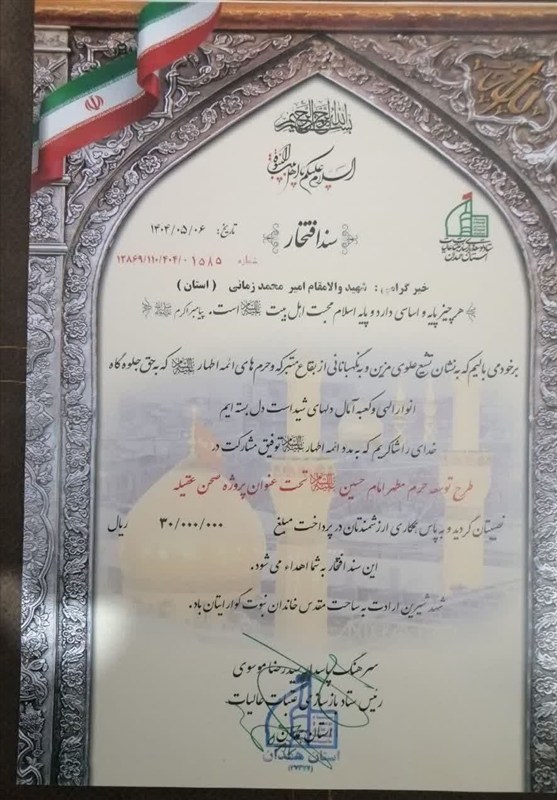 بسم الله الرحمن الرحیم
السلام علیکم یا اهل بیت النبوة
سند افتخار
تاریخ: ۱۴۰۴/۰۵/۰۶
شماره ۱۳۸۶۹/۱۱۰/۴۰۴/۰۱۵۸۵
استان همدان
خیر گرامی: شهید والامقام امیر محمد زمانی (استان)
﴿هر چیز پایه و اساسی دارد و پایه اسلام محبت اهل بیت علیهم‌السلام است. پیامبر اکرم ﴾
بر خود می بالیم که به نشان تشیع علوی مزین و به نگهبانانی از بقاع متبرکه و حرم های ائمه اطهار علیهم‌السلام که به حق جلوه گاه
انوار الهی و کعبه آمال دلهای شیداست دل بسته ایم
خدای را شاکریم که به مدد ائمه اطهار علیهم‌السلام توفیق مشارکت در
طرح توسعه حرم مطهر امام حسین علیه‌السلام تحت عنوان پروژه صحن عقیله
نصیبتان گردید و به پاس همکاری ارزشمندتان در پرداخت مبلغ ۳۰/۰۰۰/۰۰۰ ریال
این سند افتخار به شما اهداء می شود.
شهد شیرین ارادت به ساحت مقدس خاندان نبوت گوارایتان باد.
سرهنگ پاسدار سیدرضا موسوی
رئیس ستاد بازسازی عتبات عالیات
استان همدان
استان همدان